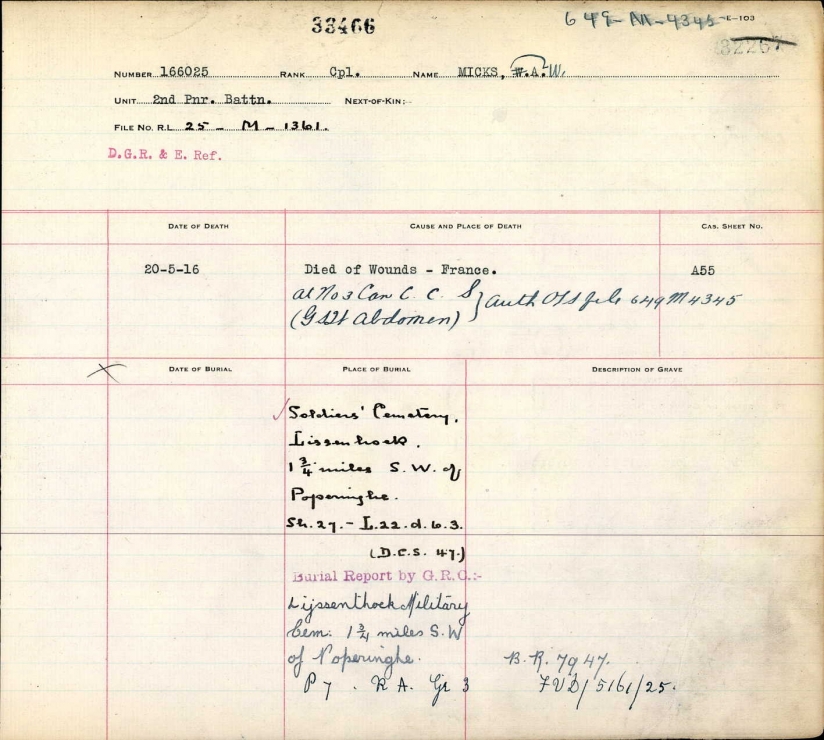 33466
649-M-4345 E-103
32267
NUMBER 166025 RANK Cpl. NAME MICKS, W.A.W.
UNIT 2nd Pnr. Battn. NEXT-OF-KIN:
FILE NO. R.L. 25 - M - 1361.
D.G.R. & E. Ref.
DATE OF DEATH CAUSE AND PLACE OF DEATH CAS. SHEET NO.
20-5-16 Died of Wounds - France. A55
at No 3 Can C. C. S } auth OTS file 649 M 4345
(GSW Abdomen)
DATE OF BURIAL PLACE OF BURIAL DESCRIPTION OF GRAVE
Soldiers' Cemetery,
Lissenhoek,
1 3/4 miles S.W. of
Poperinghe.
Sh.27.- L.22.d.6.3.
(D.C.S. 47.)
Burial Report by G.R.O.:-
Lijssenthoek Military
Cem: 1 3/4 miles S.W
of Poperinghe. B.R. 7947.
P 7. R A. Gr 3 FVD/5161/25.